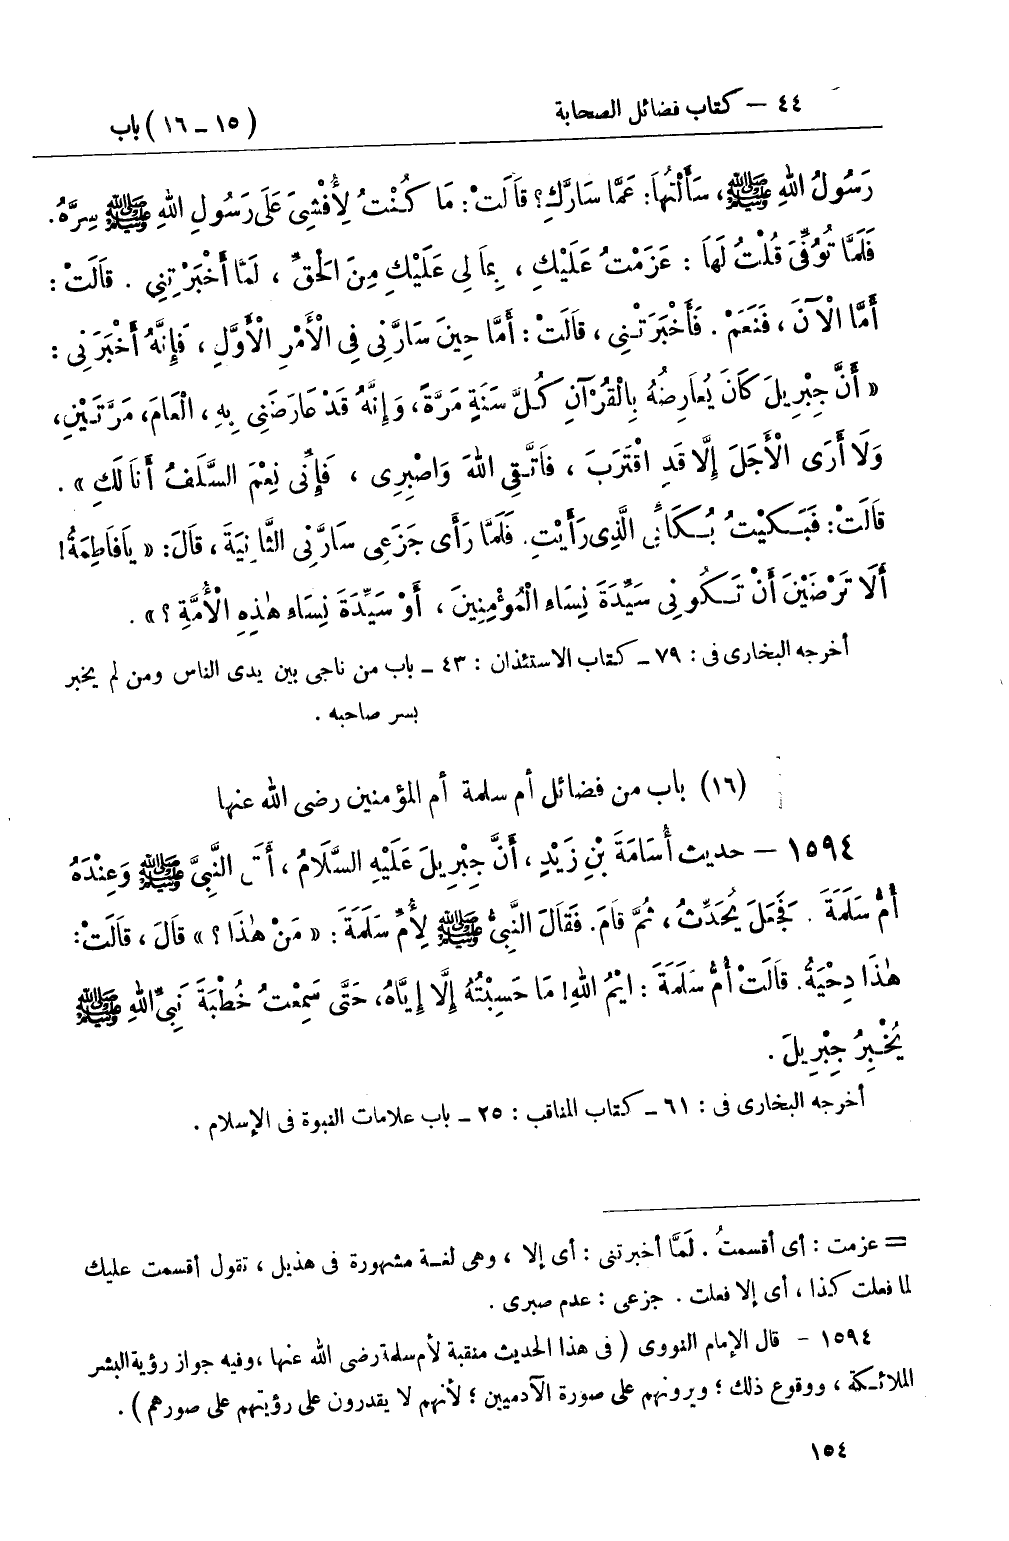 ٤٤ – كتاب فضائل الصحابة
(١٥ – ١٦) باب
رَسُولُ اللهِ ﷺ، سَأَلْتُهَا: عَمَّا سَارَّكِ؟ قَالَتْ: مَا كُنْتُ لِأُفْشِىَ عَلَى رَسُولِ اللهِ ﷺ سِرَّهُ.
فَلَمَّا تُوُفِّىَ قُلْتُ لَهَا : عَزَمْتُ عَلَيْكِ ، بِمَا لِى عَلَيْكِ مِنَ الْحَقِّ ، لَمَّا أَخْبَرْتِنِى . قَالَتْ :
أَمَّا الْآنَ ، فَنَعَمْ . فَأَخْبَرَتْنِى ، قَالَتْ : أَمَّا حِينَ سَارَّنِى فِى الْأَمْرِ الْأَوَّلِ ، فَإِنَّهُ أَخْبَرَنِى :
« أَنَّ جِبْرِيلَ كَانَ يُعَارِضُهُ بِالْقُرْآنِ كُلَّ سَنَةٍ مَرَّةً، وَإِنَّهُ قَدْ عَارَضَنِى بِهِ ، الْعَامَ، مَرَّتَيْنِ،
وَلَا أَرَى الْأَجَلَ إِلَّا قَدِ اقْتَرَبَ ، فَاتَّقِى اللهَ وَاصْبِرِى ، فَإِنِّى نِعْمَ السَّلَفُ أَنَا لَكِ » .
قَالَتْ: فَبَكَيْتُ بُكَائِى الَّذِى رَأَيْتِ. فَلَمَّا رَأَى جَزَعِى سَارَّنِى الثَّانِيَةَ ، قَالَ: « يَا فَاطِمَةُ!
أَلَا تَرْضَيْنَ أَنْ تَكُونِى سَيِّدَةَ نِسَاءِ الْمُؤْمِنِينَ ، أَوْ سَيِّدَةَ نِسَاءِ هٰذِهِ الْأُمَّةِ ؟ » .
أخرجه البخارى فى : ٧٩ – كتاب الاستئذان : ٤٣ – باب من ناجى بين يدى الناس ومن لم يخبر
بسر صاحبه .
(١٦) باب من فضائل أم سلمة أم المؤمنين رضى الله عنها
١٥٩٤ – حديث أُسَامَةَ بْنِ زَيْدٍ ، أَنَّ جِبْرِيلَ عَلَيْهِ السَّلَامُ ، أَتَى النَّبِىَّ ﷺ وَعِنْدَهُ
أُمُّ سَلَمَةَ . فَجَعَلَ يُحَدِّثُ ، ثُمَّ قَامَ. فَقَالَ النَّبِىُّ ﷺ لِأُمِّ سَلَمَةَ : « مَنْ هٰذَا ؟ » قَالَ ، قَالَتْ:
هٰذَا دِحْيَةُ. قَالَتْ أُمُّ سَلَمَةَ : ايْمُ اللهِ! مَا حَسِبْتُهُ إِلَّا إِيَّاهُ، حَتَّى سَمِعْتُ خُطْبَةَ نَبِىِّ اللهِ ﷺ
يُخْبِرُ جِبْرِيلَ .
أخرجه البخارى فى : ٦١ – كتاب المناقب : ٢٥ – باب علامات النبوة فى الإسلام .
= عزمت : أى أقسمتُ . لَمَّا أخبرتنى : أى إلا ، وهى لغة مشهورة فى هذيل ، تقول أقسمت عليك
لما فعلت كذا ، أى إلا فعلت . جزعى : عدم صبرى .
١٥٩٤ – قال الإمام النووى ( فى هذا الحديث منقبة لأم سلمة رضى الله عنها ، وفيه جواز رؤية البشر
الملائكة ، ووقوع ذلك ؛ ويرونهم على صورة الآدميين ؛ لأنهم لا يقدرون على رؤيتهم على صورهم ) .
١٥٤